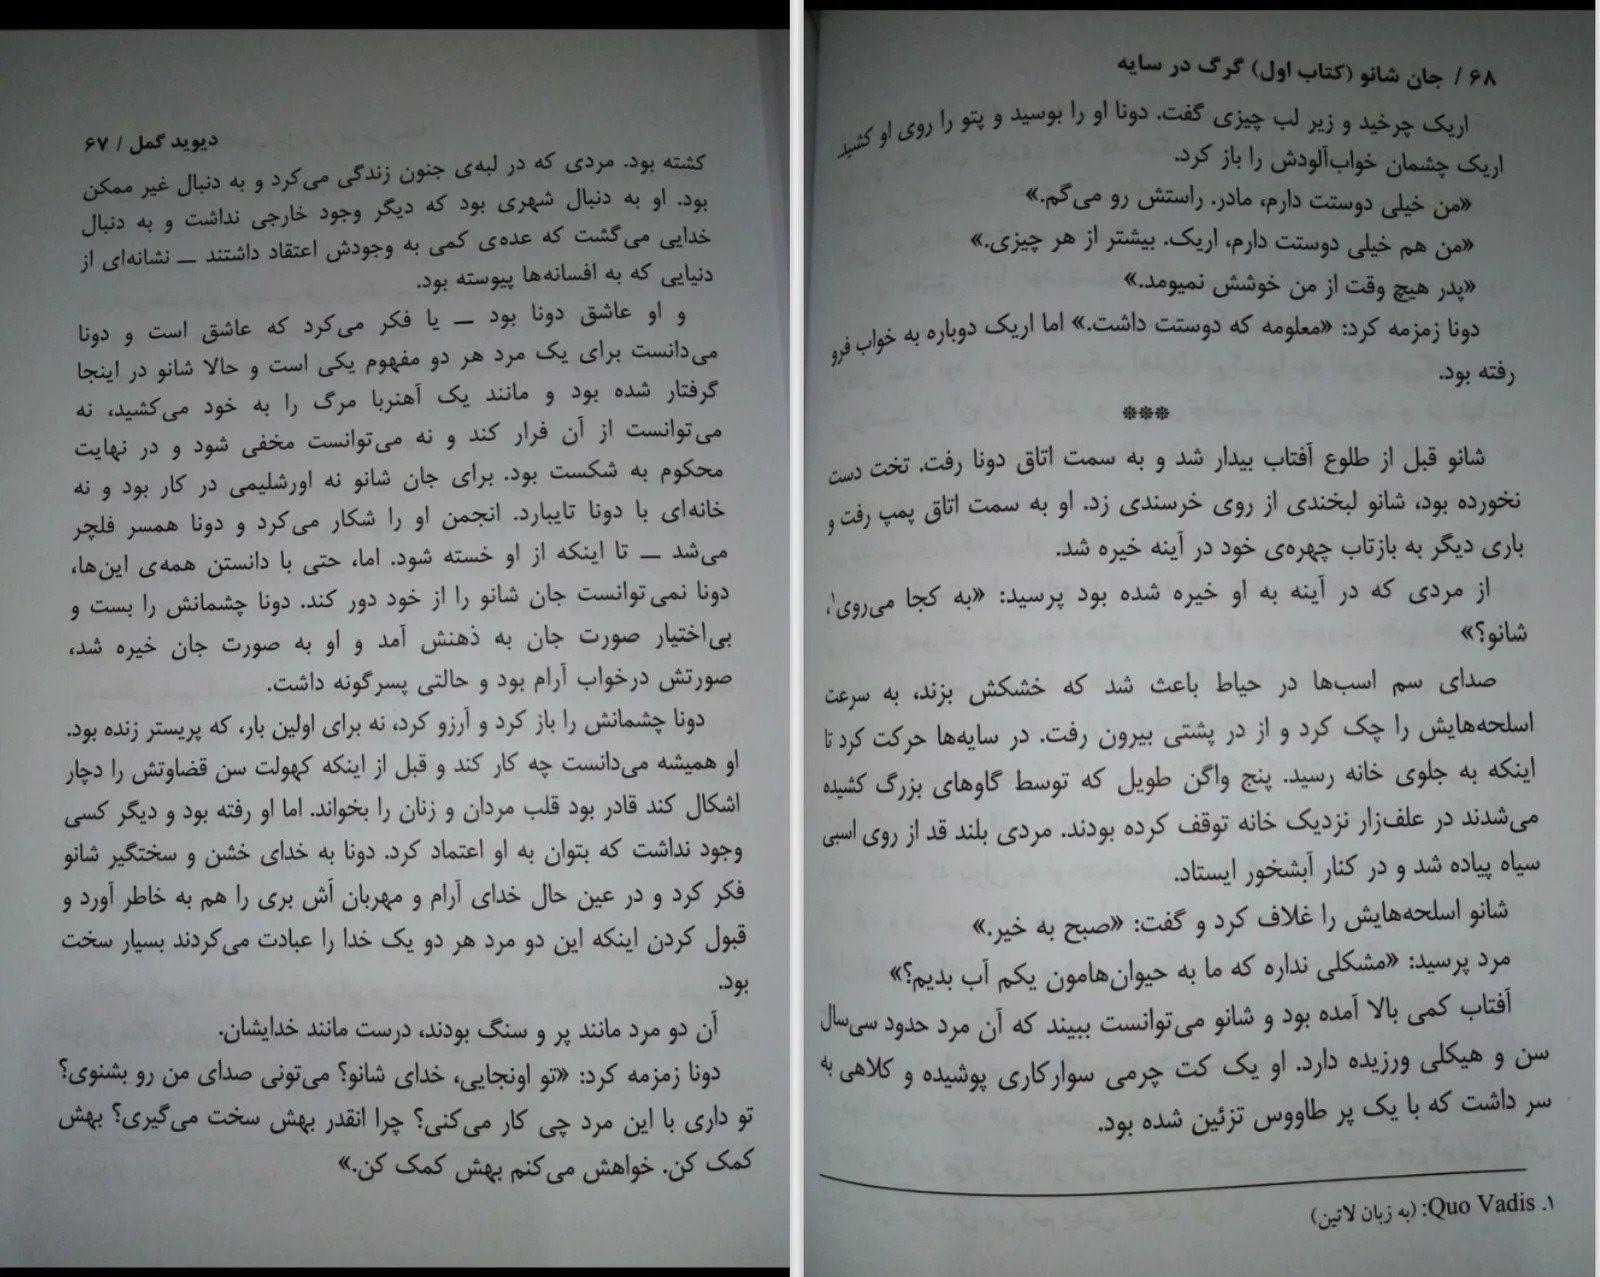 دیوید گمل / ۶۷
کشته بود. مردی که در لبه‌ی جنون زندگی می‌کرد و به دنبال غیر ممکن
بود. او به دنبال شهری بود که دیگر وجود خارجی نداشت و به دنبال
خدایی می‌گشت که عده‌ی کمی به وجودش اعتقاد داشتند ــ نشانه‌ای از
دنیایی که به افسانه‌ها پیوسته بود.
و او عاشق دونا بود ــ یا فکر می‌کرد که عاشق است و دونا
می‌دانست برای یک مرد هر دو مفهوم یکی است و حالا شانو در اینجا
گرفتار شده بود و مانند یک آهنربا مرگ را به خود می‌کشید، نه
می‌توانست از آن فرار کند و نه می‌توانست مخفی شود و در نهایت
محکوم به شکست بود. برای جان شانو نه اورشلیمی در کار بود و نه
خانه‌ای با دونا تایبارد. انجمن او را شکار می‌کرد و دونا همسر فلچر
می‌شد ــ تا اینکه از او خسته شود. اما، حتی با دانستن همه‌ی این‌ها،
دونا نمی‌توانست جان شانو را از خود دور کند. دونا چشمانش را بست و
بی‌اختیار صورت جان به ذهنش آمد و او به صورت جان خیره شد،
صورتش درخواب آرام بود و حالتی پسرگونه داشت.
دونا چشمانش را باز کرد و آرزو کرد، نه برای اولین بار، که پریستر زنده بود.
او همیشه می‌دانست چه کار کند و قبل از اینکه کهولت سن قضاوتش را دچار
اشکال کند قادر بود قلب مردان و زنان را بخواند. اما او رفته بود و دیگر کسی
وجود نداشت که بتوان به او اعتماد کرد. دونا به خدای خشن و سختگیر شانو
فکر کرد و در عین حال خدای آرام و مهربان آش بری را هم به خاطر آورد و
قبول کردن اینکه این دو مرد هر دو یک خدا را عبادت می‌کردند بسیار سخت
بود.
آن دو مرد مانند پر و سنگ بودند، درست مانند خدایشان.
دونا زمزمه کرد: «تو اونجایی، خدای شانو؟ می‌تونی صدای من رو بشنوی؟
تو داری با این مرد چی کار می‌کنی؟ چرا انقدر بهش سخت می‌گیری؟ بهش
کمک کن. خواهش می‌کنم بهش کمک کن.»
۶۸ / جان شانو (کتاب اول) گرگ در سایه
اریک چرخید و زیر لب چیزی گفت. دونا او را بوسید و پتو را روی او کشید.
اریک چشمان خواب‌آلودش را باز کرد.
«من خیلی دوستت دارم، مادر. راستش رو می‌گم.»
«من هم خیلی دوستت دارم، اریک. بیشتر از هر چیزی.»
«پدر هیچ وقت از من خوشش نمیومد.»
دونا زمزمه کرد: «معلومه که دوستت داشت.» اما اریک دوباره به خواب فرو
رفته بود.
***
شانو قبل از طلوع آفتاب بیدار شد و به سمت اتاق دونا رفت. تخت دست
نخورده بود، شانو لبخندی از روی خرسندی زد. او به سمت اتاق پمپ رفت و
باری دیگر به بازتاب چهره‌ی خود در آینه خیره شد.
از مردی که در آینه به او خیره شده بود پرسید: «به کجا می‌روی۱،
شانو؟»
صدای سم اسب‌ها در حیاط باعث شد که خشکش بزند، به سرعت
اسلحه‌هایش را چک کرد و از در پشتی بیرون رفت. در سایه‌ها حرکت کرد تا
اینکه به جلوی خانه رسید. پنج واگن طویل که توسط گاوهای بزرگ کشیده
می‌شدند در علف‌زار نزدیک خانه توقف کرده بودند. مردی بلند قد از روی اسبی
سیاه پیاده شد و در کنار آبشخور ایستاد.
شانو اسلحه‌هایش را غلاف کرد و گفت: «صبح به خیر.»
مرد پرسید: «مشکلی نداره که ما به حیوان‌هامون یکم آب بدیم؟»
آفتاب کمی بالا آمده بود و شانو می‌توانست ببیند که آن مرد حدود سی‌سال
سن و هیکلی ورزیده دارد. او یک کت چرمی سوارکاری پوشیده و کلاهی به
سر داشت که با یک پر طاووس تزئین شده بود.
۱. Quo Vadis: (به زبان لاتین)